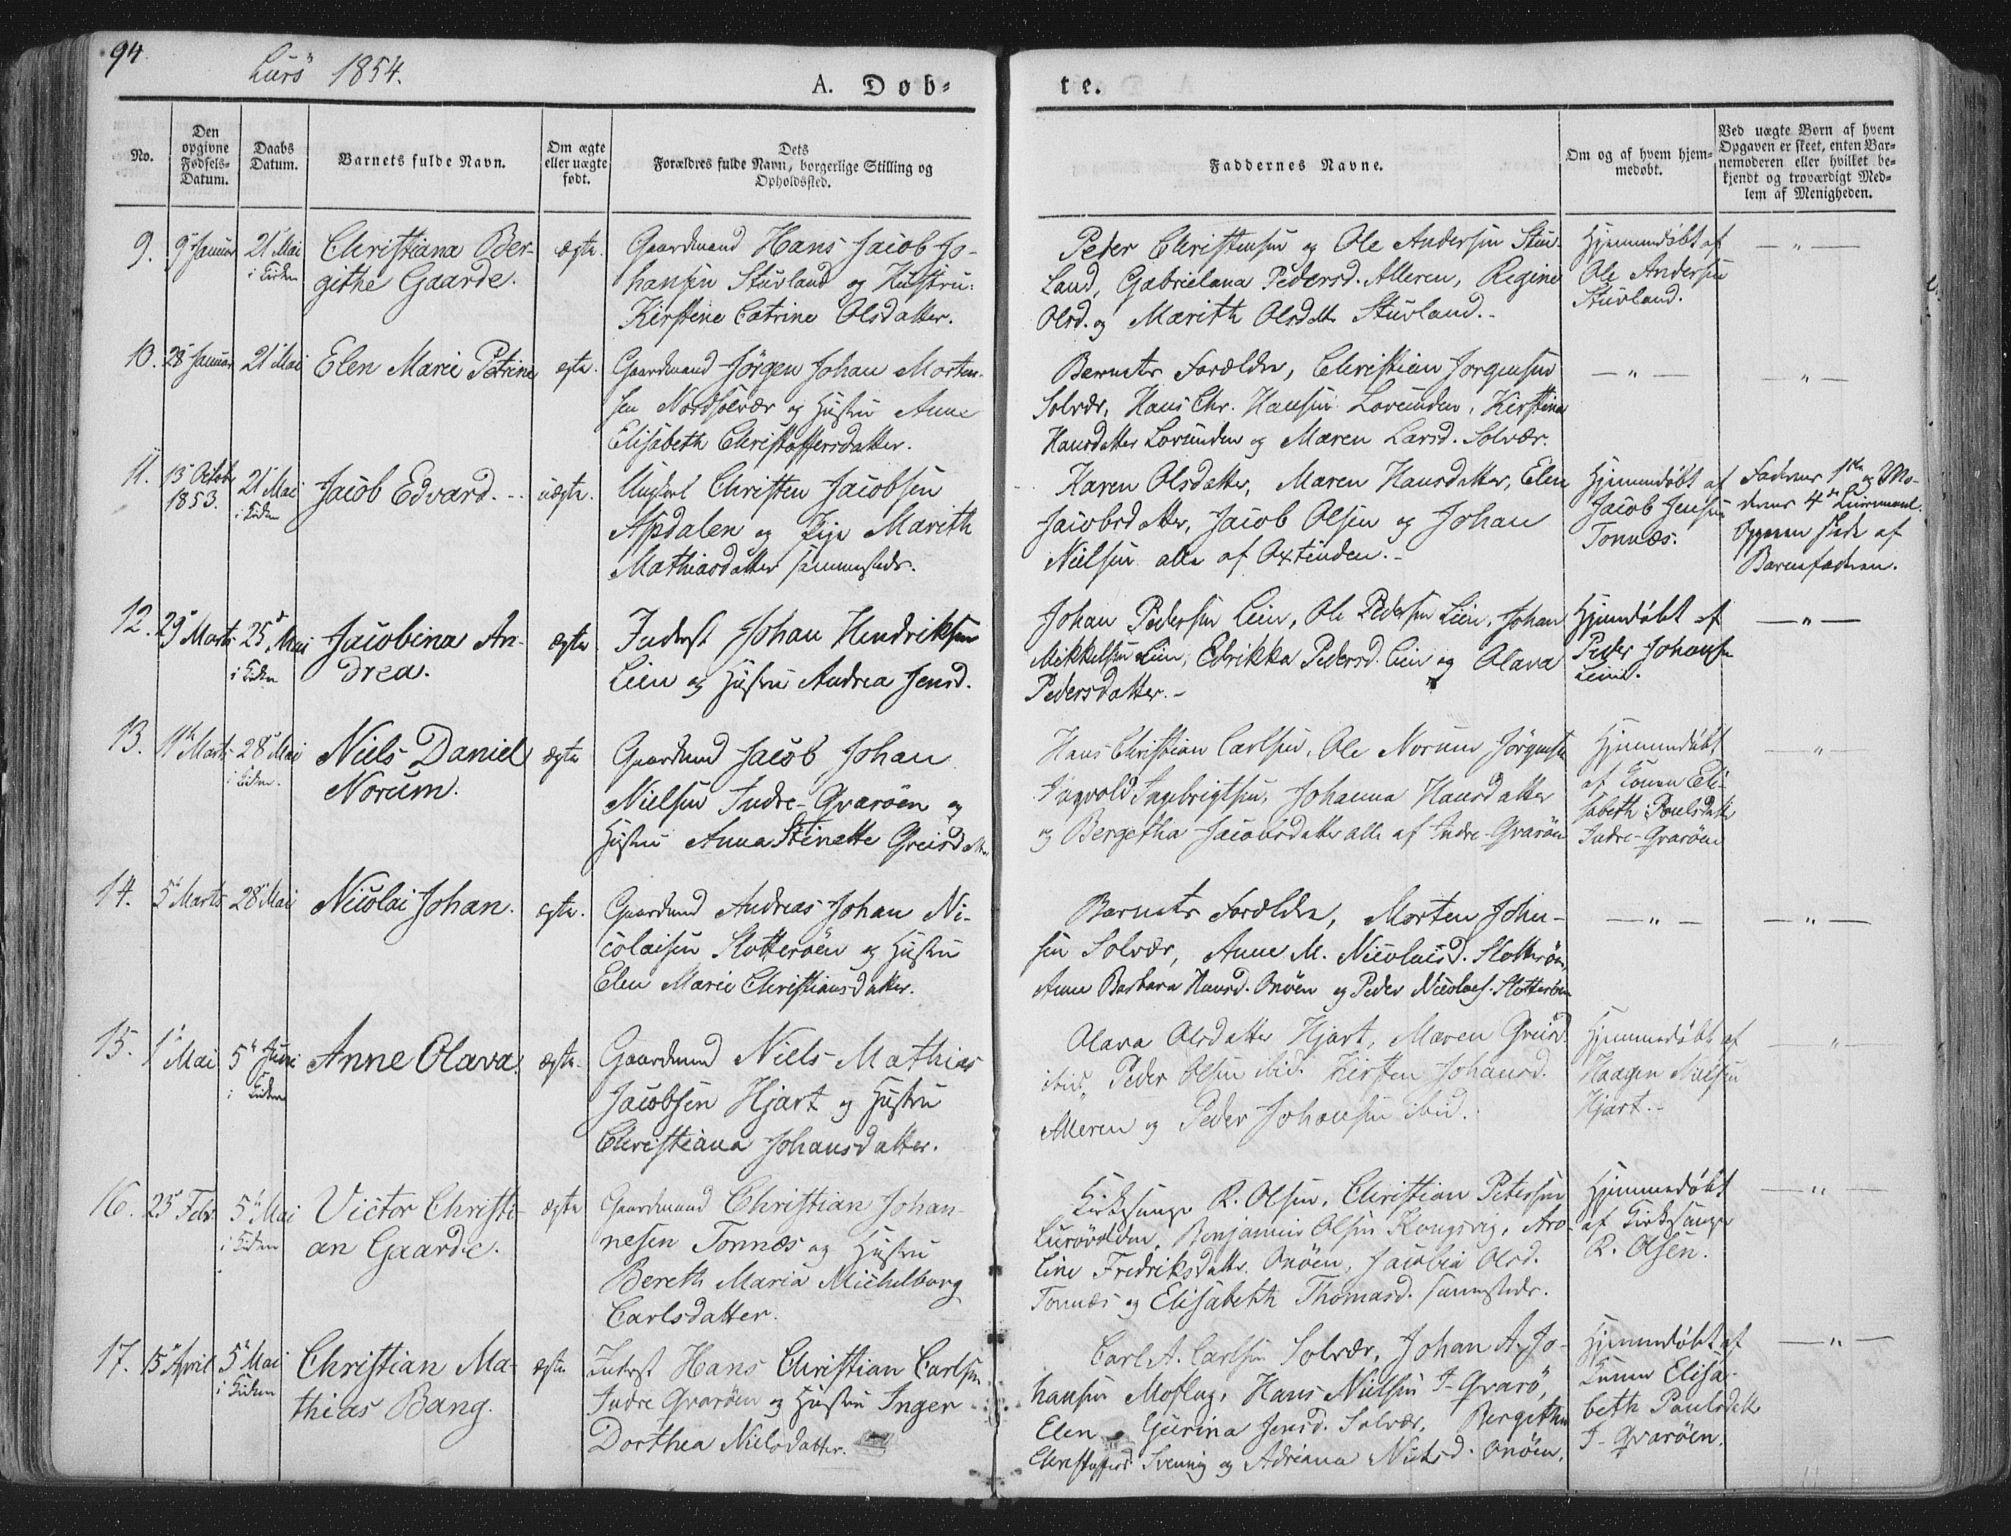 94.
Lurö 1854.
A. Døb-
te.
No.
Den opgivne Fødsels-Datum.
Daabs Datum.
Barnets fulde Navn.
Om ægte eller uægte født.
Dets Forældres fulde Navn, borgerlige Stilling og Opholdssted.
Faddernes Navne.
Om og af hvem hjemmedøbt.
Ved uægte Børn af hvem Opgaven er skeet, enten Barnemoderen eller hvilket bekjendt og troværdigt Medlem af Menigheden.
9. 9 Januar 21 Mai i Kirken
Christiana Ber-
githe Gaarde.
ægte.
Gaardmand Hans Jacob Jo-
hansen Stuvland og Hustru:
Kirstine Catrine Olsdatter.
Peder Christensen og Ole Andersen Stuv-
land, Gabrielana Pedersd. Alleren, Regine
Olsd. og Marith Olsdatt. Stuvland.
Hjemmedøbt af
Ole Andersen
Stuvland.
— " —
10. 28 Januar 21 Mai
Elen Marie Petrine
ægte.
Gaardmand Jörgen Johan Morten-
sen Nordsolvær og Hustru Anne
Elisabeth Christoffersdatter.
Barnets Forældre, Christian Jorgensen
Solvær, Hans Chr. Hansen Lovunden, Kirstina
Hansdatter Lovunden og Maren Larsd. Solvær.
— " —
— " —
11. 13 Octob 1853. 21 Mai i Kirken
Jacob Edvard.
uægte.
Ungkarl Christen Jacobsen
Aspdalen og Pige Marith
Mathiasdatter sammesteds.
Karen Olsdatter, Maren Hansdatter, Elen
Jacobsdatter, Jacob Olsen og Johan
Nielsen alle af Oxtinden.
Hjemmedøbt af
Jacob Jensen
Tonnæs.
Faderens 1ste og Mo-
derens 4de Leiermaal.
Opgaven skede af
Barnefaderen.
12. 29 Marts 25 Mai i Kirken
Jacobina An-
drea.
ægte.
Inderst Johan Hendriksen
Lien og Hustru Andrea Jensd.
Johan Pedersen Lien, Ole Pedersen Lien, Johan
Mikkelsen Lien, Edrikka Pedersd. Lien og Olava
Pedersdatter.
Hjemdøbt af
Peder Johans.
Lien.
— " —
13. 11 Marts 28 Mai i Kirken.
Niels Daniel
Norum.
ægte
Gaardmand Jacob Johan
Nielsen Indre-Qvaröen og
Hustru Anna Stinette Greisdatt.
Hans Christian Carlsen, Ole Norum Jörgensen
Ingebrigtsen, Johanna Hansdatter
og Bergetha Jacobsdatter alle af Indre-Qvaröen
Hjemmedøbt
af Konen Eli-
sabeth Poulsdatt.
Indre-Qvaröen
— " —
14. 5 Marts 28 Mai
Nicolai Johan.
ægte.
Gaardmand Andreas Johan Ni-
colaisen Slotteröen og Hustru
Elen Marie Christiansdatter.
Barnets Forældre, Morten John-
sen Solvær, Anne M. Nicolaisd. Slotteröen,
Anne Barbara Hansd. Onöen og Peder Nicolais. Slotteröen
— " —
— " —
15. 1 Mai 5 Juni i Kirken
Anne Olava.
ægte.
Gaardmand Niels Mathias
Jacobsen Hjart og Hustru
Christiana Johansdatter.
Olava Olsdatter Hjart, Maren Greisd.
ibid., Peder Olsen ibid. Kirsten Johansd.
Alleren og Peder Johansen ibid.
Hjemmedøbt af
Haagen Nielsen
Hjart.
— " —
16. 25 Febr. 5 Mai i Kirken
Victor Christi-
an Gaarde.
ægte
Gaardmand Christian Johan-
nesen Tonnæs og Hustru
Bereth Maria Michelborg
Carlsdatter.
Kirkesanger R. Olsen, Christian Petersen
Lurövolden, Benjamin Olsen Kongsvig, Aro-
line Fredriksdatt. Onöen, Jacobia Olsd.
Tonnæs og Elisabeth Thomasd. sammesteds.
Hjemmedøbt
af Kirkesanger
R. Olsen.
— " —
17. 15 April 5 Mai i Kirken
Christian Ma-
thias Bang.
ægte
Inderst Hans Christian Carlsen
Indre Qvaröen og Hustru Inger
Dorthea Nielsdatter.
Carl A. Carlsen Solvær, Johan A. Jo-
hansen Moflag, Hans Nielsen I-Qvarö,
Elen Gurina Jensd. Solvær, Bergithe
Christoffersd. Svennig og Adriana Nielsd. Onöen.
Hjemmedøbt af
Konen Elisa-
beth Poulsdatt.
I-Qvaröen.
— " —